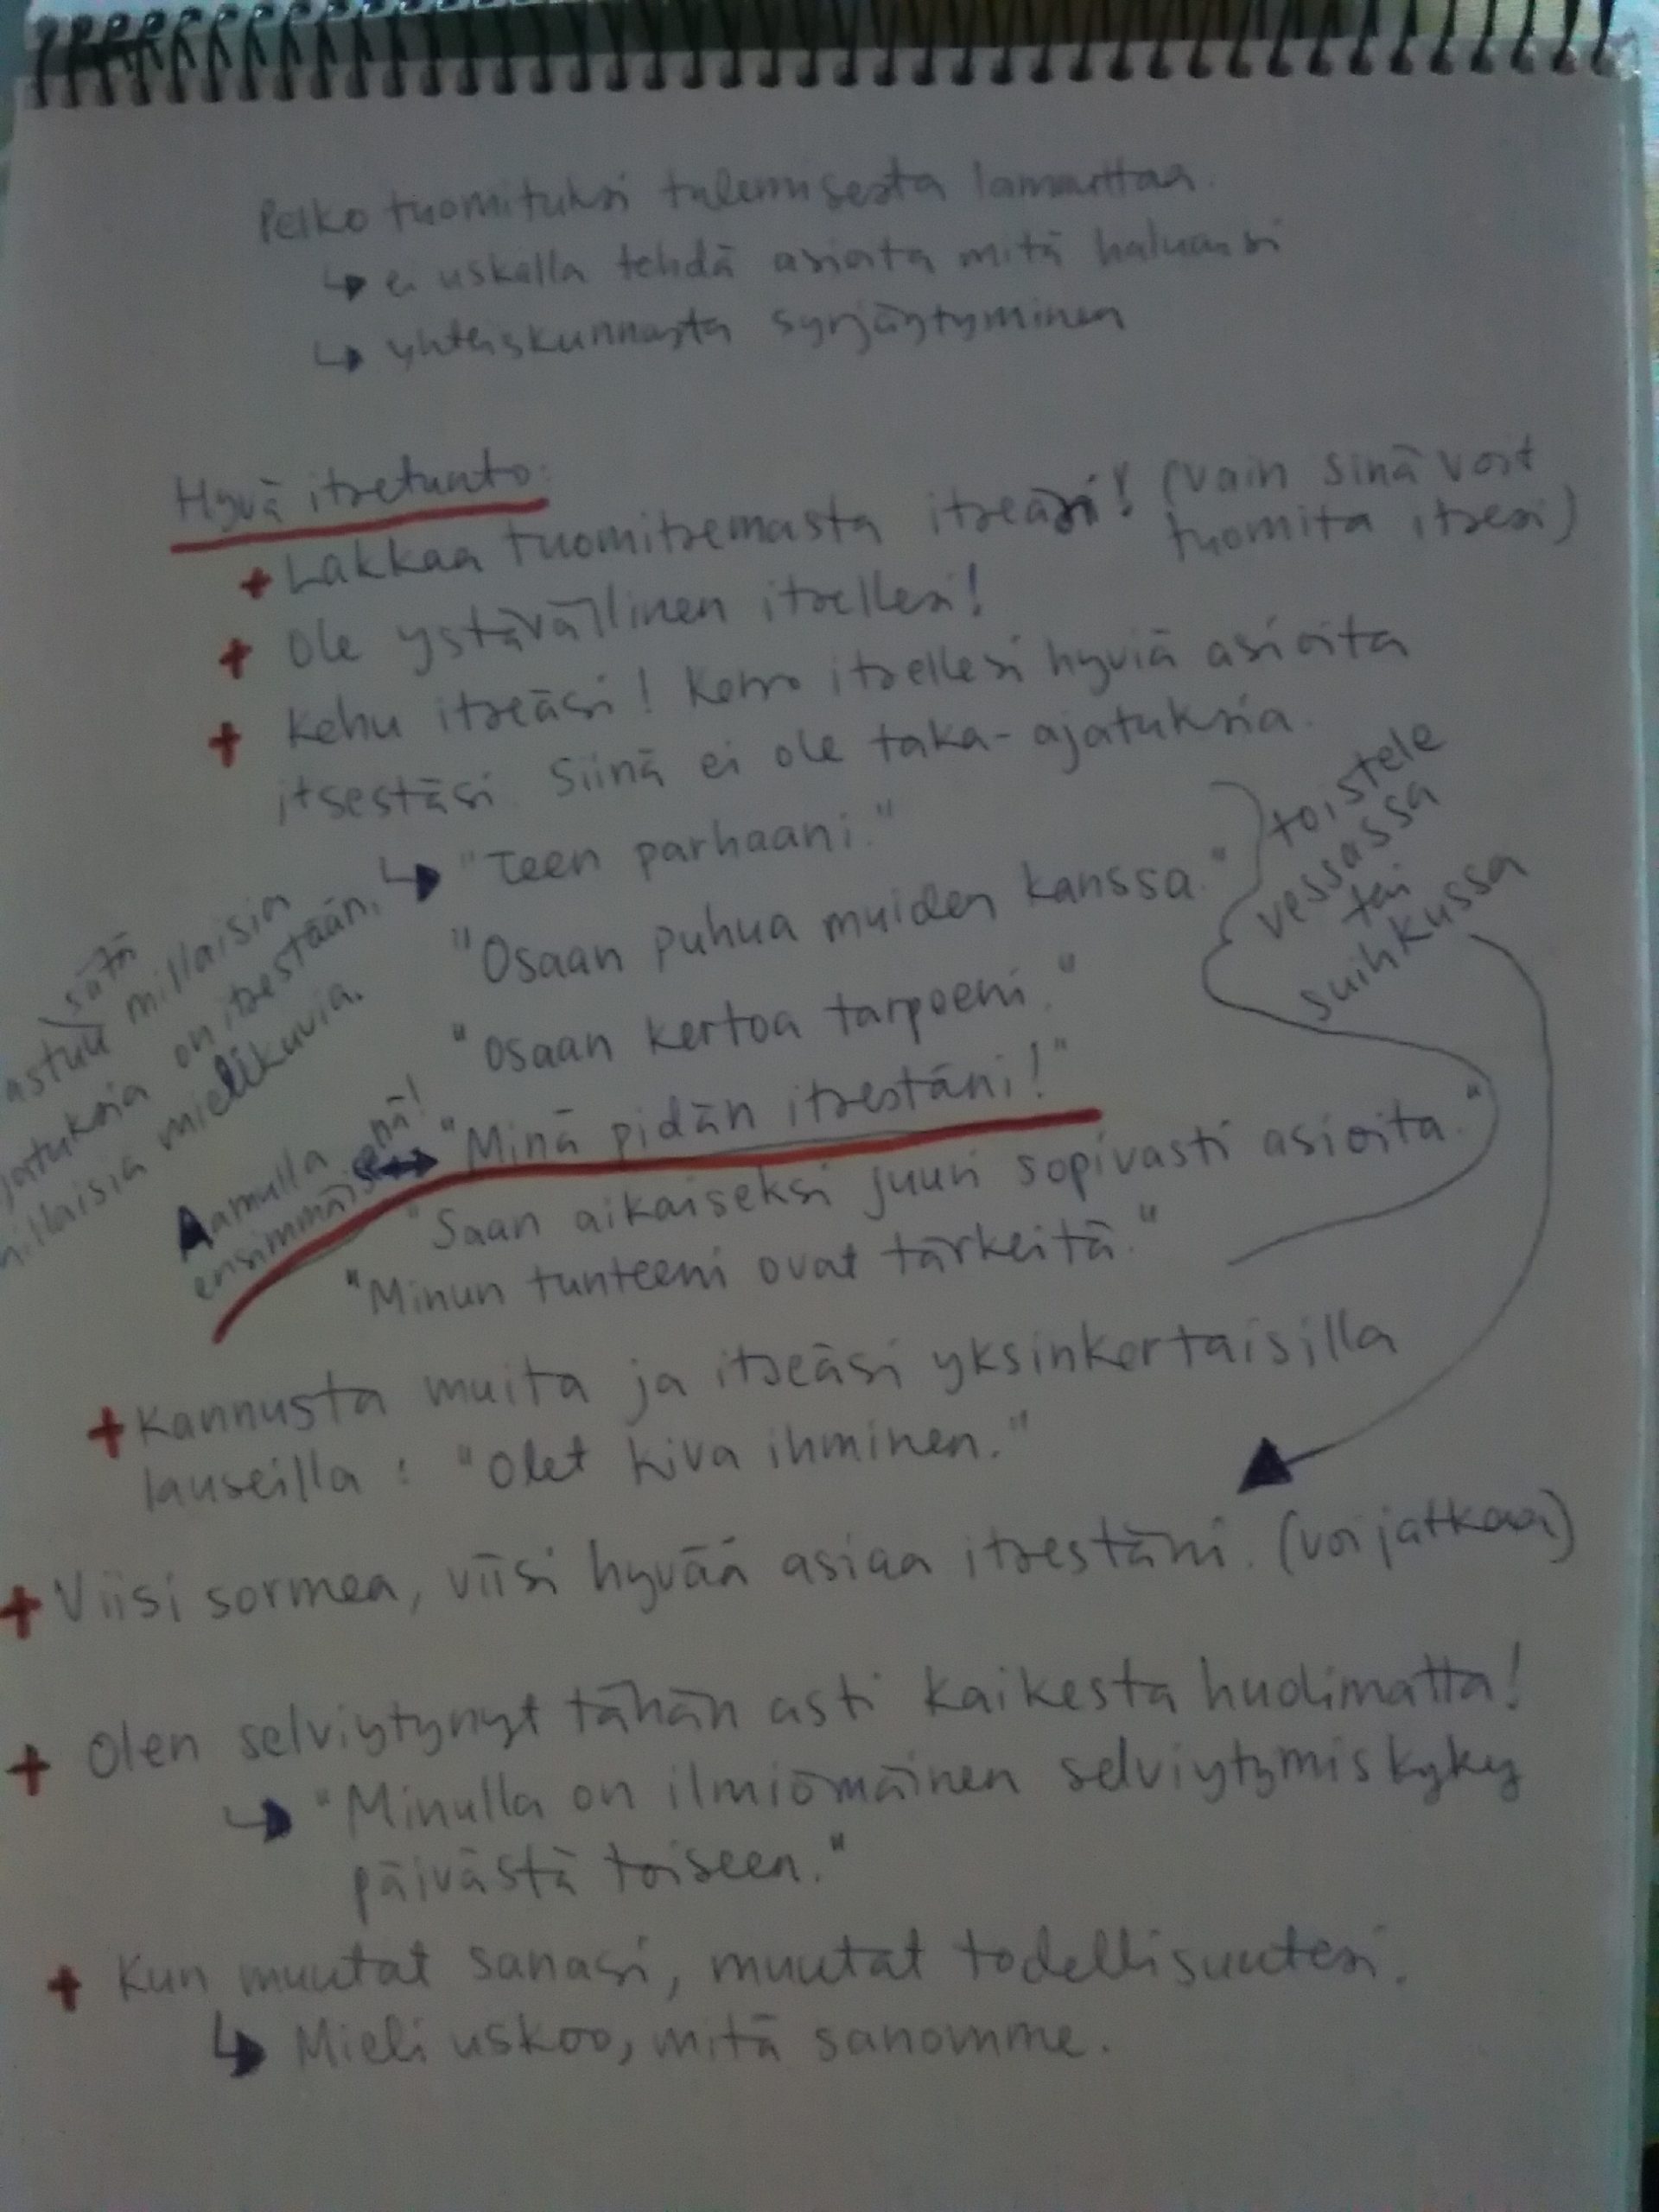 Pelko tuomituksi tulemisesta lamauttaa.
↳ ei uskalla tehdä asioita mitä haluaisi
↳ yhteiskunnasta syrjäytyminen
Hyvä itsetunto:
+ Lakkaa tuomitsemasta itseäsi! (vain sinä voit
tuomita itsesi)
+ Ole ystävällinen itsellesi!
+ Kehu itseäsi! Kerro itsellesi hyviä asioita
itsestäsi. Siinä ei ole taka-ajatuksia.
↳ "Teen parhaani."
"Osaan puhua muiden kanssa."
toistele
vessassa
tai
suihkussa
"Osaan kertoa tarpeeni."
millaisia
on itsestään.
millaisia mielikuvia.
Aamulla
ensimmäisenä!
"Minä pidän itsestäni!"
"Saan aikaiseksi juuri sopivasti asioita."
"Minun tunteeni ovat tärkeitä."
+ Kannusta muita ja itseäsi yksinkertaisilla
lauseilla : "Olet kiva ihminen."
+ Viisi sormea, viisi hyvää asiaa itsestäni. (voi jatkaa)
+ Olen selviytynyt tähän asti kaikesta huolimatta!
↳ "Minulla on ilmiömäinen selviytymiskyky
päivästä toiseen."
+ Kun muutat sanasi, muutat todellisuutesi.
↳ Mieli uskoo, mitä sanomme.